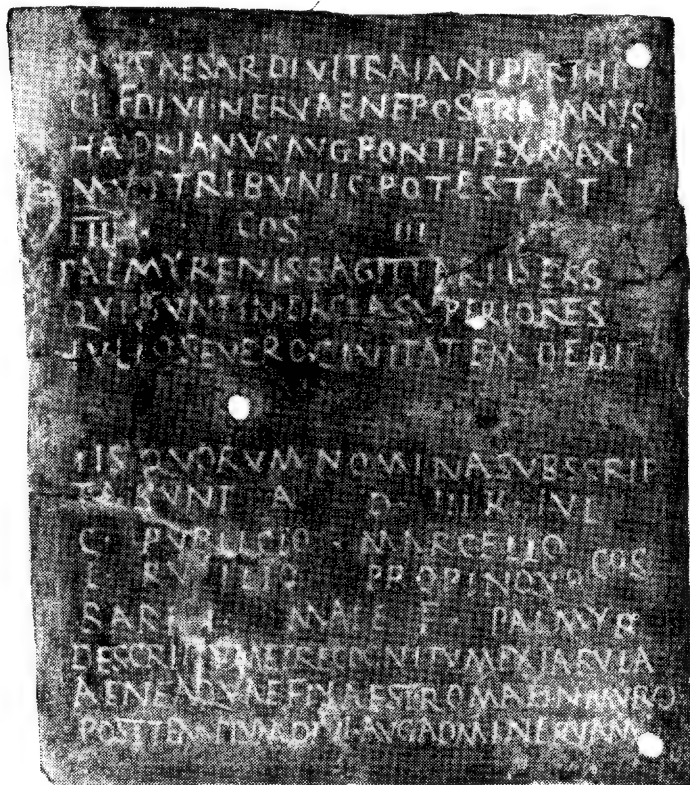 CAESAR DIVI TRAIANI PARTHI
CI F DIVI NERVAE NEPOS TRAIANVS
HADRIANVS AVG PONTIFEX MAXI
MVS TRIBVNIC POTESTAT
IIII COS III
PALMYRENIS SAGITTARIIS
QVI SVNT IN DACIA SVPERIORE S
IVLIO SEVERO CIVITATEM DEDIT
IIS QVORVM NOMINA SVBSCRIP
TA SVNT A D IIII K IVL
C PVBLICIO MARCELLO COS
L RVTILIO PROPINQVO
MALE F PALMYR
DESCRIPTVM ET RECOGNITVM EX TABVLA
AENEA QVAE FIXA EST ROMAE IN MVRO
POST TEMPLVM DIVI AVG AD MINERVAM